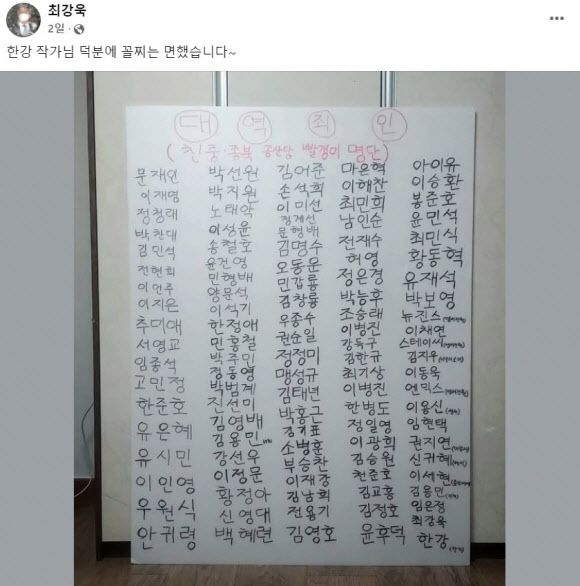 최강욱
2일
한강 작가님 덕분에 꼴찌는 면했습니다~
대 역 죄 인
( 친중·종북 공산당 빨갱이 명단)
문재인
이재명
정청래
박찬대
김민석
전현희
이언주
이지은
추미애
서영교
임종석
고민정
한준호
유은혜
유시민
이인영
우원식
안귀령
박선원
박지원
노태악
이성윤
송철호
윤건영
민형배
양문석
이석기
한정애
민홍철
박주민
정동영
박범계
진선미
김영배
김용민
강선우
이정문
황정아
신영대
백혜련
김어준
손석희
이미선
정계선
문형배
김명수
오동운
민갑룡
김창룡
우종수
권순일
정정미
맹성규
김태년
박홍근
김기표
소병훈
부승찬
이재강
김남희
전용기
김영호
마은혁
이해찬
최민희
남인순
전재수
허영
정은경
박능후
조승태
이병진
강득구
김한규
최기상
이병진
한병도
정일영
이광희
김승원
천준호
김교흥
김정호
윤후덕
아이유
이승환
봉준호
윤민석
최민식
황동혁
유재석
박보영
뉴진스
이채연
스테이씨
김지우
이동욱
엔믹스
이용신
임현택
권지연
신귀혜
이세현
김용민
임은정
최강욱
한강(작가)